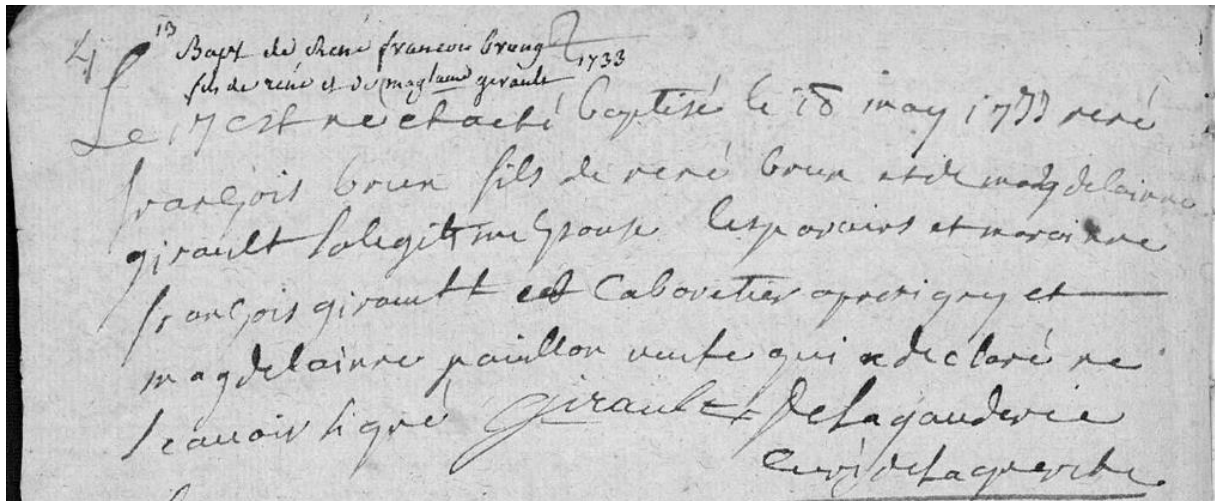 4 13 Bapt de René francois brung
fils de rené et de maglaine girault 1733
Le 17 est ne et a eté baptisé le 18 may 1733 rené
françois brun fils de rené brun et de magdelainne
girault sa legitime Epouse les parains et marainne
françois girault Cabaretier a presigny et
magdelainne paillon veufe qui a declaré ne
scauoir signé Girault Delagauderie
curé de laguerche